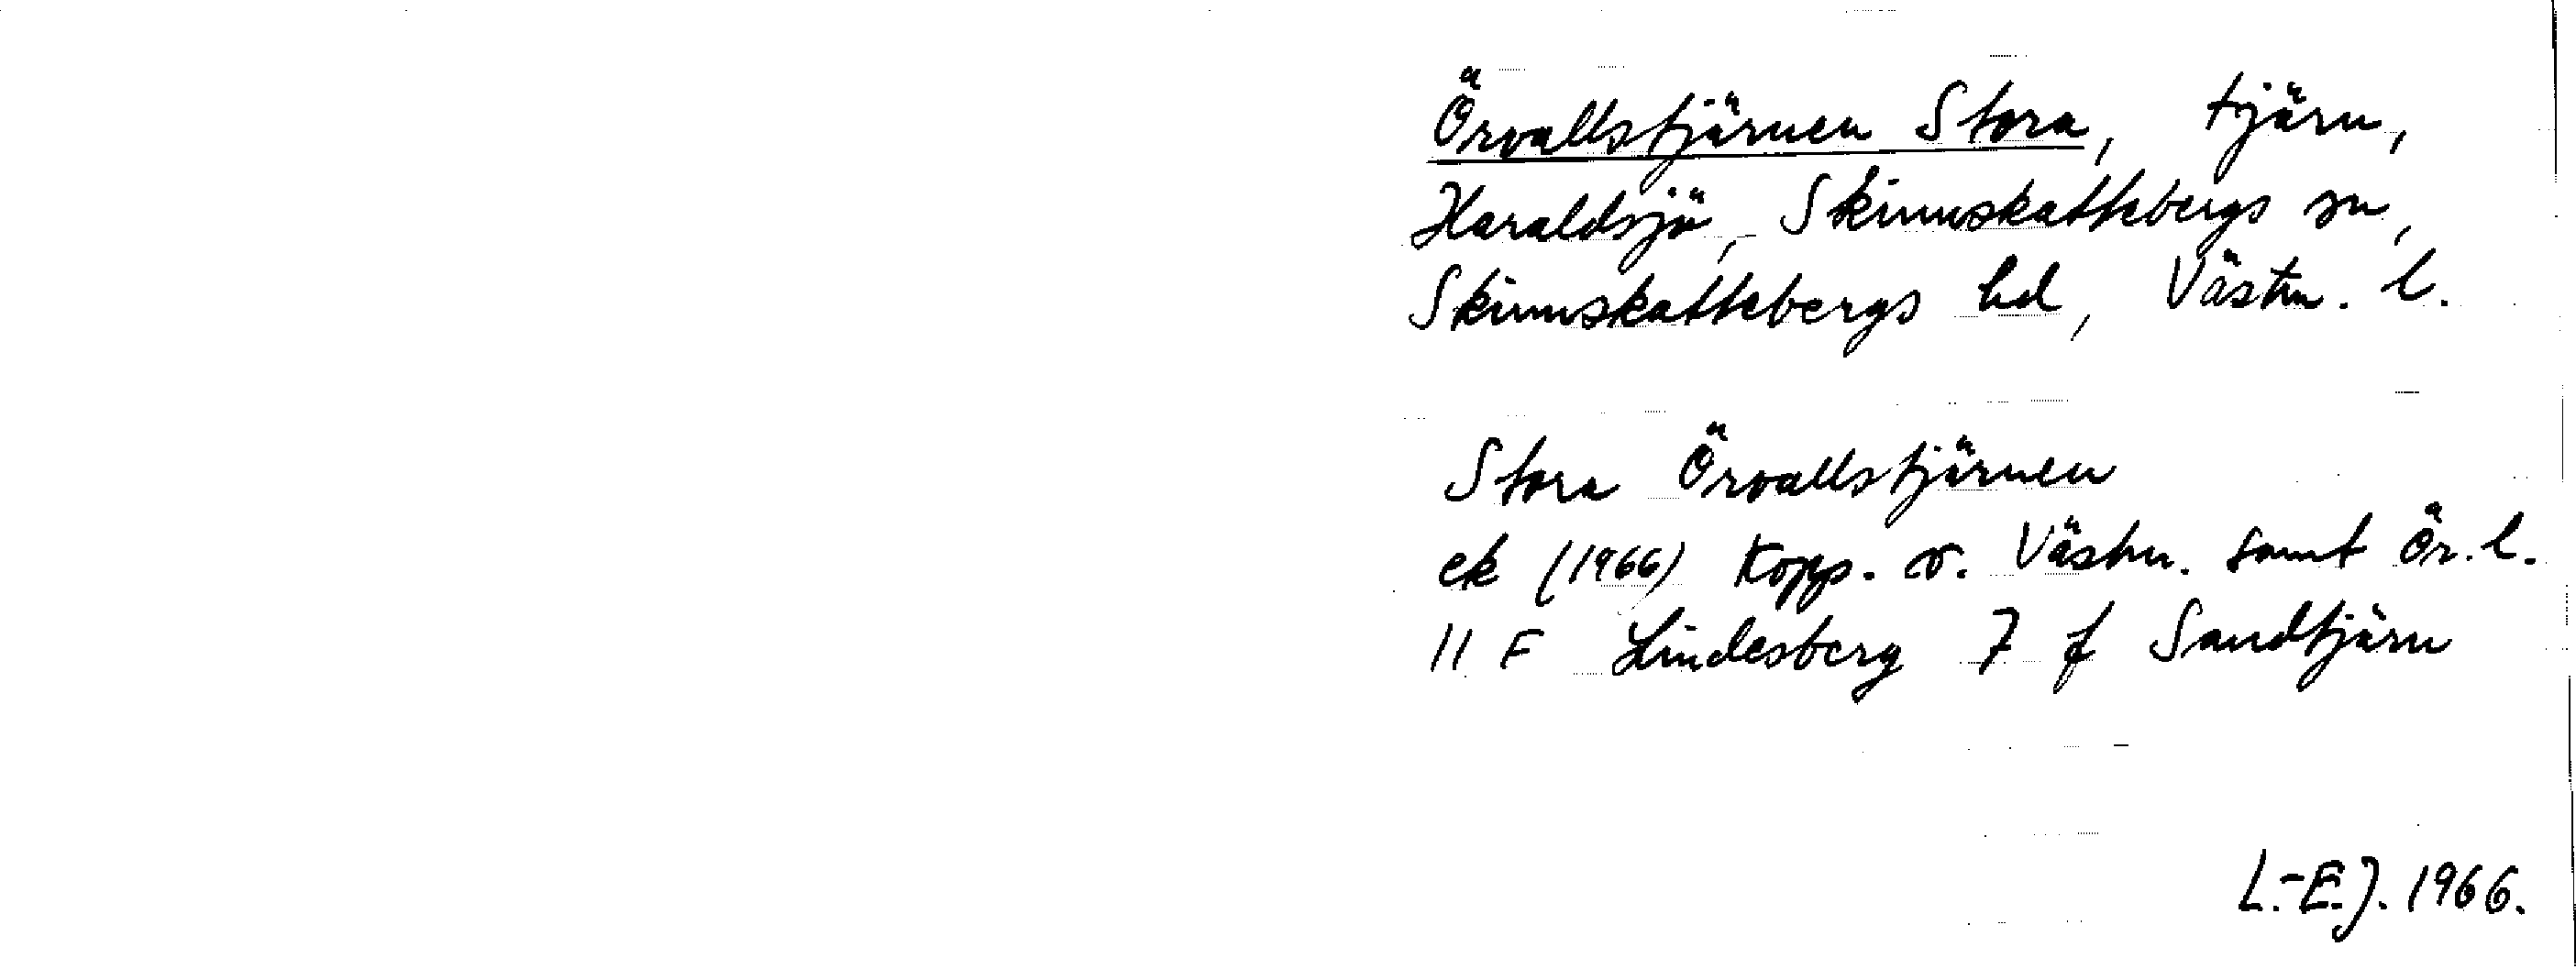 Örvallstjärnen Stora, tjärn,
Haraldsjö, Skinnskattebergs sn,
Skinnskattebergs hd, Västm. l.
Stora Örvallstjärnen
ek (1966) Kopp. o. Västm. samt Ör. l.
11 F Lindesberg 7 f Sandtjärn
L.-E.J. 1966.